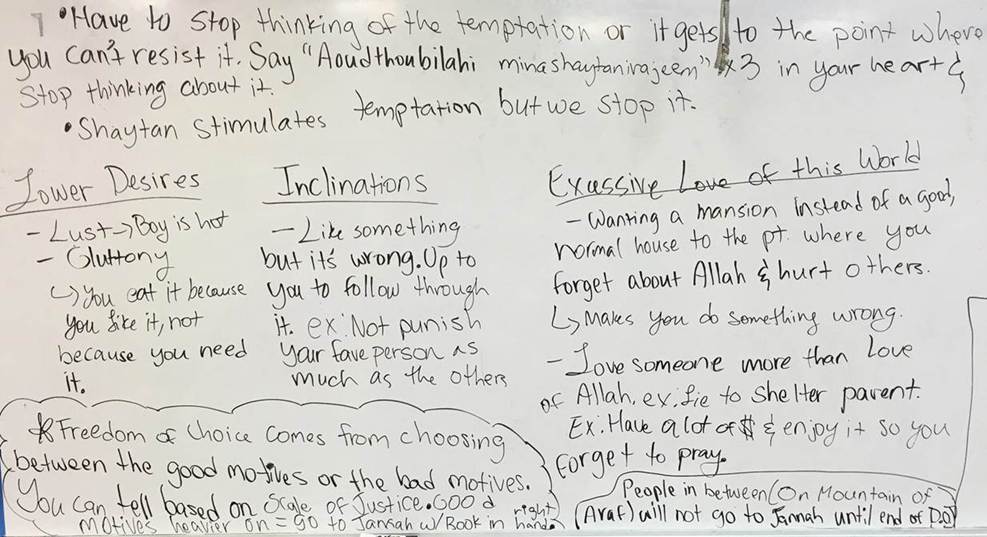 • Have to stop thinking of the temptation or it gets to the point where
you can't resist it. Say "Aoudthoubilahi minashaytanirajeem" x3 in your heart &
stop thinking about it.
• Shaytan stimulates temptation but we stop it.
Lower Desires
- Lust → Boy is hot
- Gluttony
↳ You eat it because
you like it, not
because you need
it.
Inclinations
- Like something
but it's wrong. Up to
you to follow through
it. ex: Not punish
your fave person as
much as the others
Exessive Love of this World
- Wanting a mansion instead of a good,
normal house to the pt. where you
forget about Allah & hurt others.
↳ Makes you do something wrong.
- Love someone more than love
of Allah. ex: lie to shelter parent.
Ex: Have a lot of $ & enjoy it so you
forget to pray.
* Freedom of Choice comes from choosing
between the good motives or the bad motives.
You can tell based on Scale of Justice. Good
motives heavier on = go to Jannah w/ Book in right hand.
People in between (On Mountain of
Araf) will not go to Jannah until end of DOJ